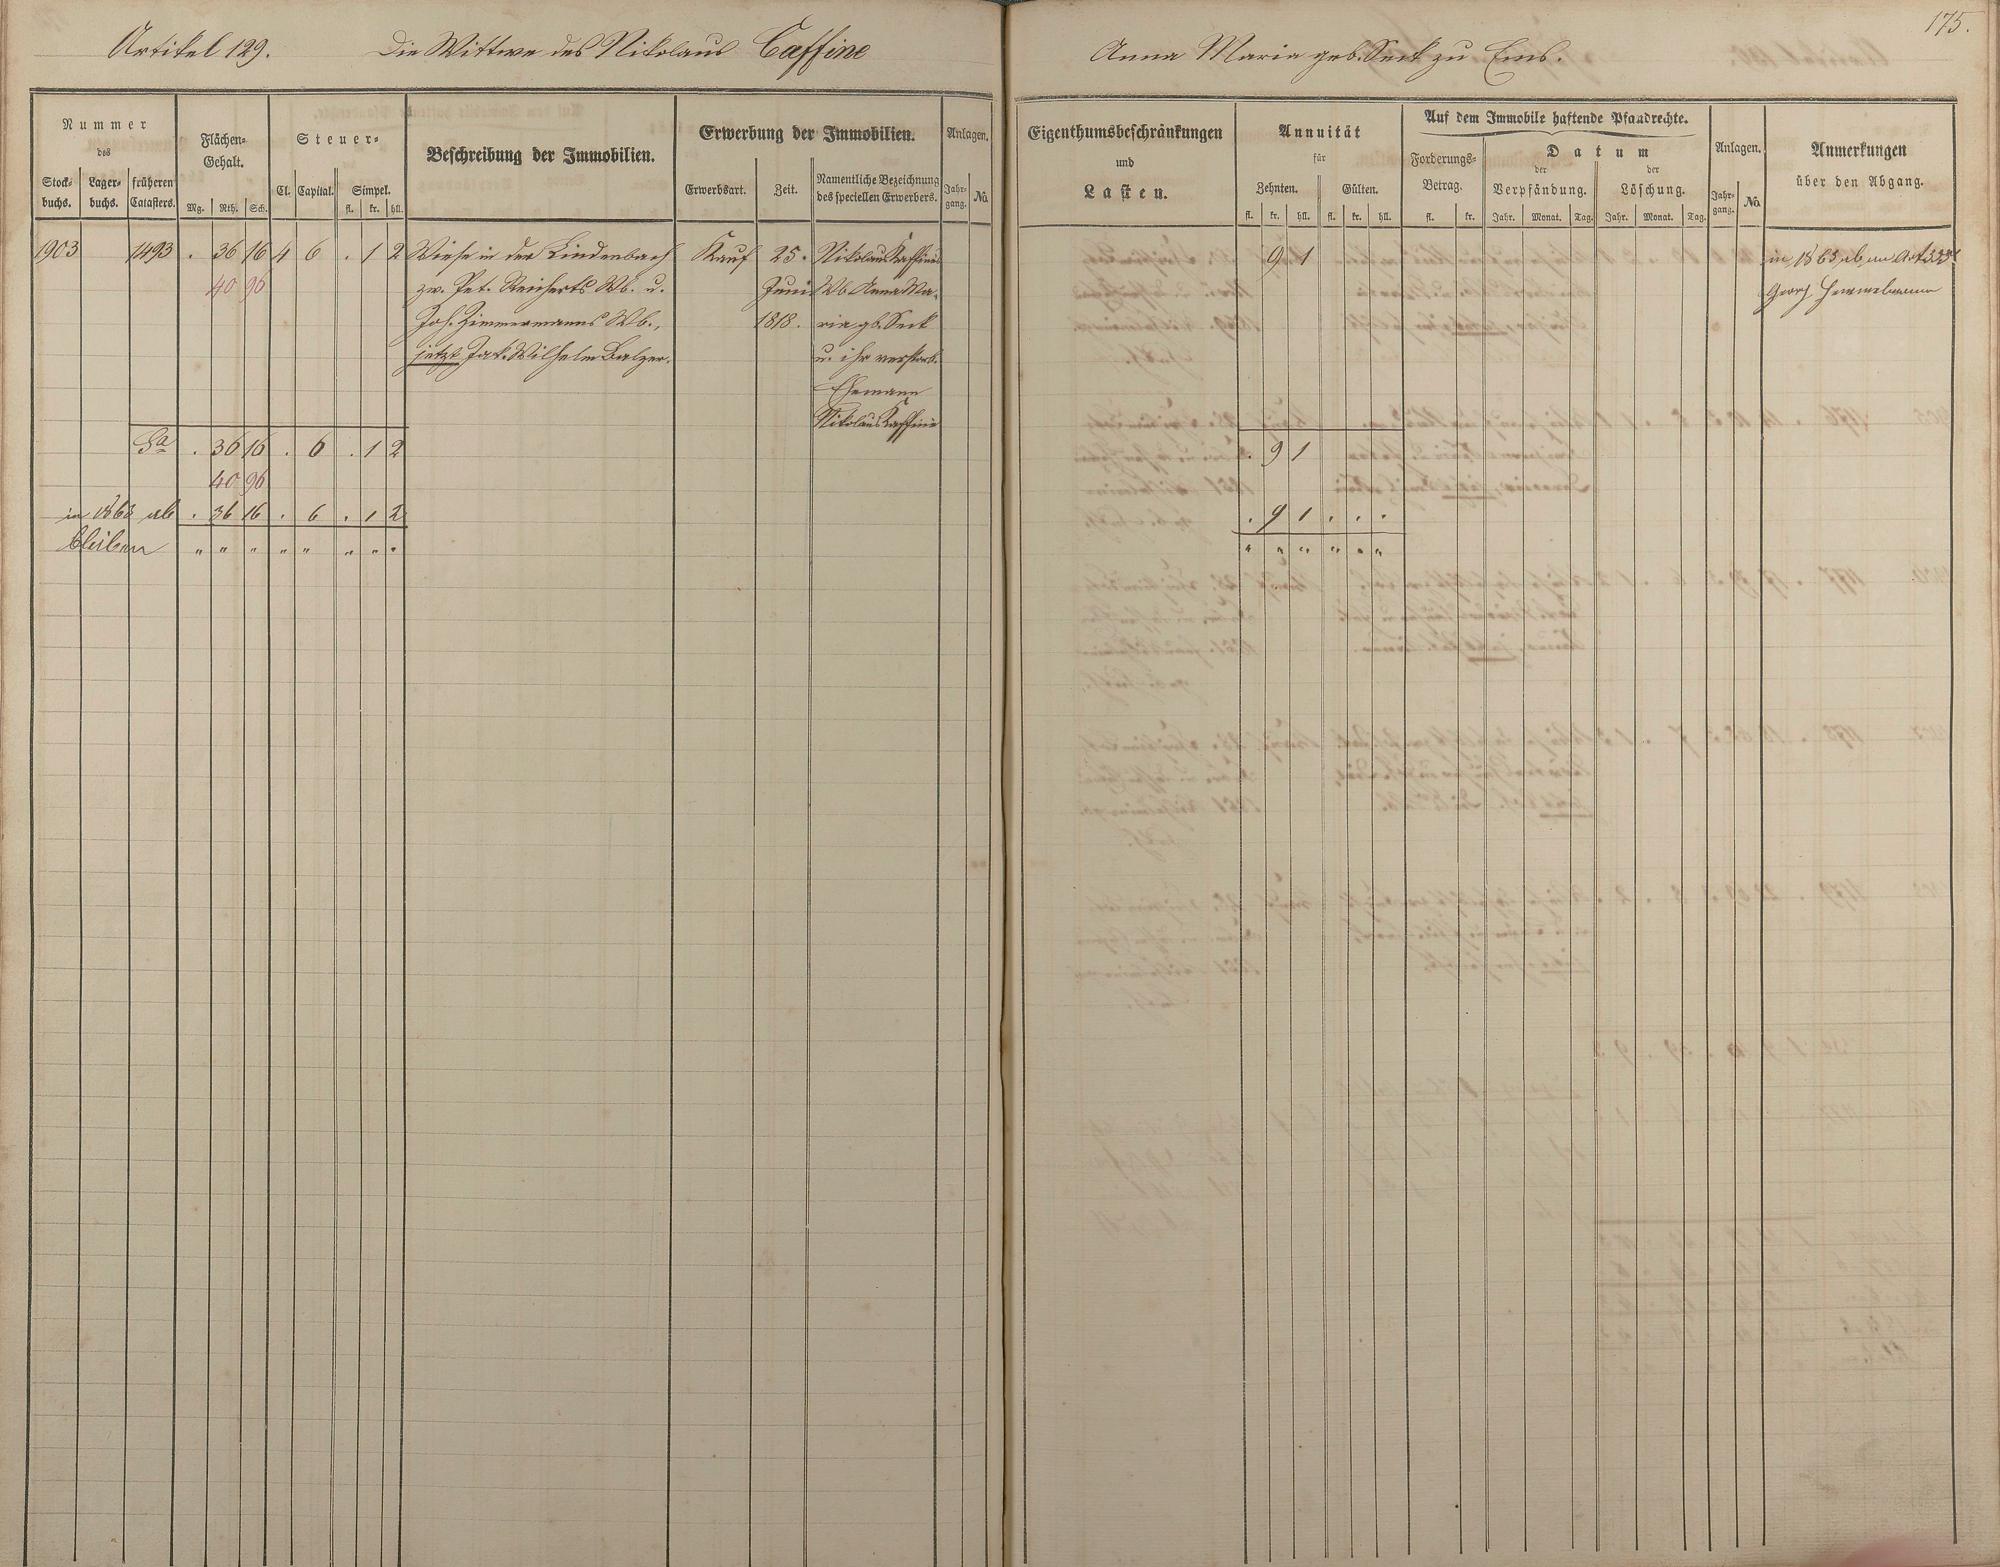 175.
Artikel 129. Die Wittwe des Nikolaus Caffine Anna Maria geb. Seck zu Ems.
Nummer
des
Stock-
buchs.
Lager-
buchs.
früheren
Catasters.
Flächen-
Gehalt.
Mg. Rth. Sch.
Steuer-
Cl. Capital. Simpel.
fl. kr. hll.
Beschreibung der Immobilien.
Erwerbung der Immobilien.
Erwerbsart. Zeit.
Namentliche Bezeichnung
des speciellen Erwerbers.
Anlagen.
Jahr-
gang.
No.
Eigenthumsbeschränkungen
und
Lasten.
Annuität
für
Zehnten. Gülten.
fl. kr. hll. fl. kr. hll.
Auf dem Immobile haftende Pfandrechte.
Forderungs-
Betrag.
fl. kr.
Datum
der
Verpfändung.
der
Löschung.
Jahr. Monat. Tag. Jahr. Monat. Tag.
Anlagen.
Jahr-
gang.
No.
Anmerkungen
über den Abgang.
1903 1493 . 36 16 4 6 . 1 2 Wiese in der Lindenbach Kauf 25. Nikolaus Kaffines 9 1 in 1863 ab an Art
40 96 zw. Pet. Reicherts Wb. u. Juni Wb Anna Ma- Georg
Joh. Zimmermanns Wb., 1818. ria gb. Seck
jetzt Jak. Wilhelm Balzer. u. ihr verstorb.
Ehemann
Nikolaus Kaffine
Sa . 36 16 . 6 . 1 2 . 9 1
40 96
in 1863 ab . 36 16 . 6 . 1 2 . 9 1 . . .
bleiben " " " " " " " " " " " " " "